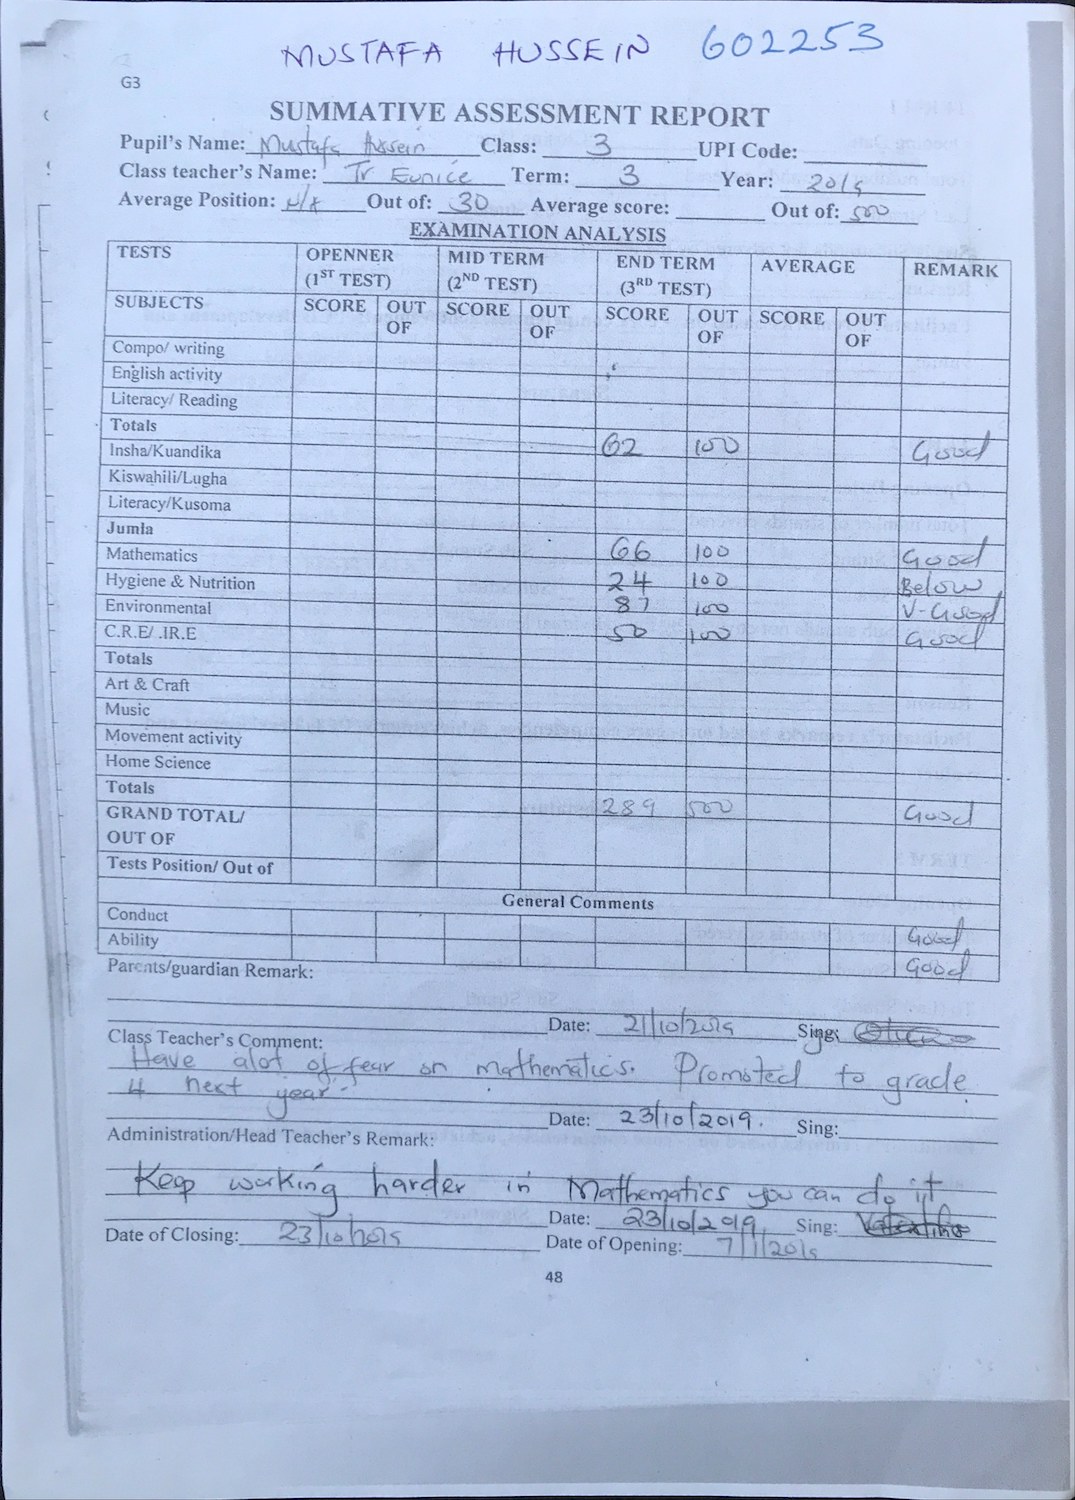 MUSTAFA HUSSEIN 602253
G3
SUMMATIVE ASSESSMENT REPORT
Pupil's Name: Mustafa Hussein Class: 3 UPI Code:
Class teacher's Name: Tr Eunice Term: 3 Year: 2019
Average Position: N/A Out of: 30 Average score: Out of: 500
EXAMINATION ANALYSIS
TESTS OPENNER (1ST TEST) MID TERM (2ND TEST) END TERM (3RD TEST) AVERAGE REMARK
SUBJECTS SCORE OUT OF SCORE OUT OF SCORE OUT OF SCORE OUT OF
Compo/ writing
English activity
Literacy/ Reading
Totals
Insha/Kuandika 62 100 Good
Kiswahili/Lugha
Literacy/Kusoma
Jumla
Mathematics 66 100 Good
Hygiene & Nutrition 24 100 Below
Environmental 87 100 V-Good
C.R.E/ .IR.E 50 100 Good
Totals
Art & Craft
Music
Movement activity
Home Science
Totals
GRAND TOTAL/ OUT OF 289 500 Good
Tests Position/ Out of
General Comments
Conduct Good
Ability Good
Parents/guardian Remark:
Date: 21/10/2019 Sing:
Class Teacher's Comment:
Have alot of fear on mathematics. Promoted to grade
4 next year.
Date: 23/10/2019. Sing:
Administration/Head Teacher's Remark:
Keep working harder in Mathematics you can do it
Date: 23/10/2019 Sing:
Date of Closing: 23/10/2019 Date of Opening: 7/1/2019
48